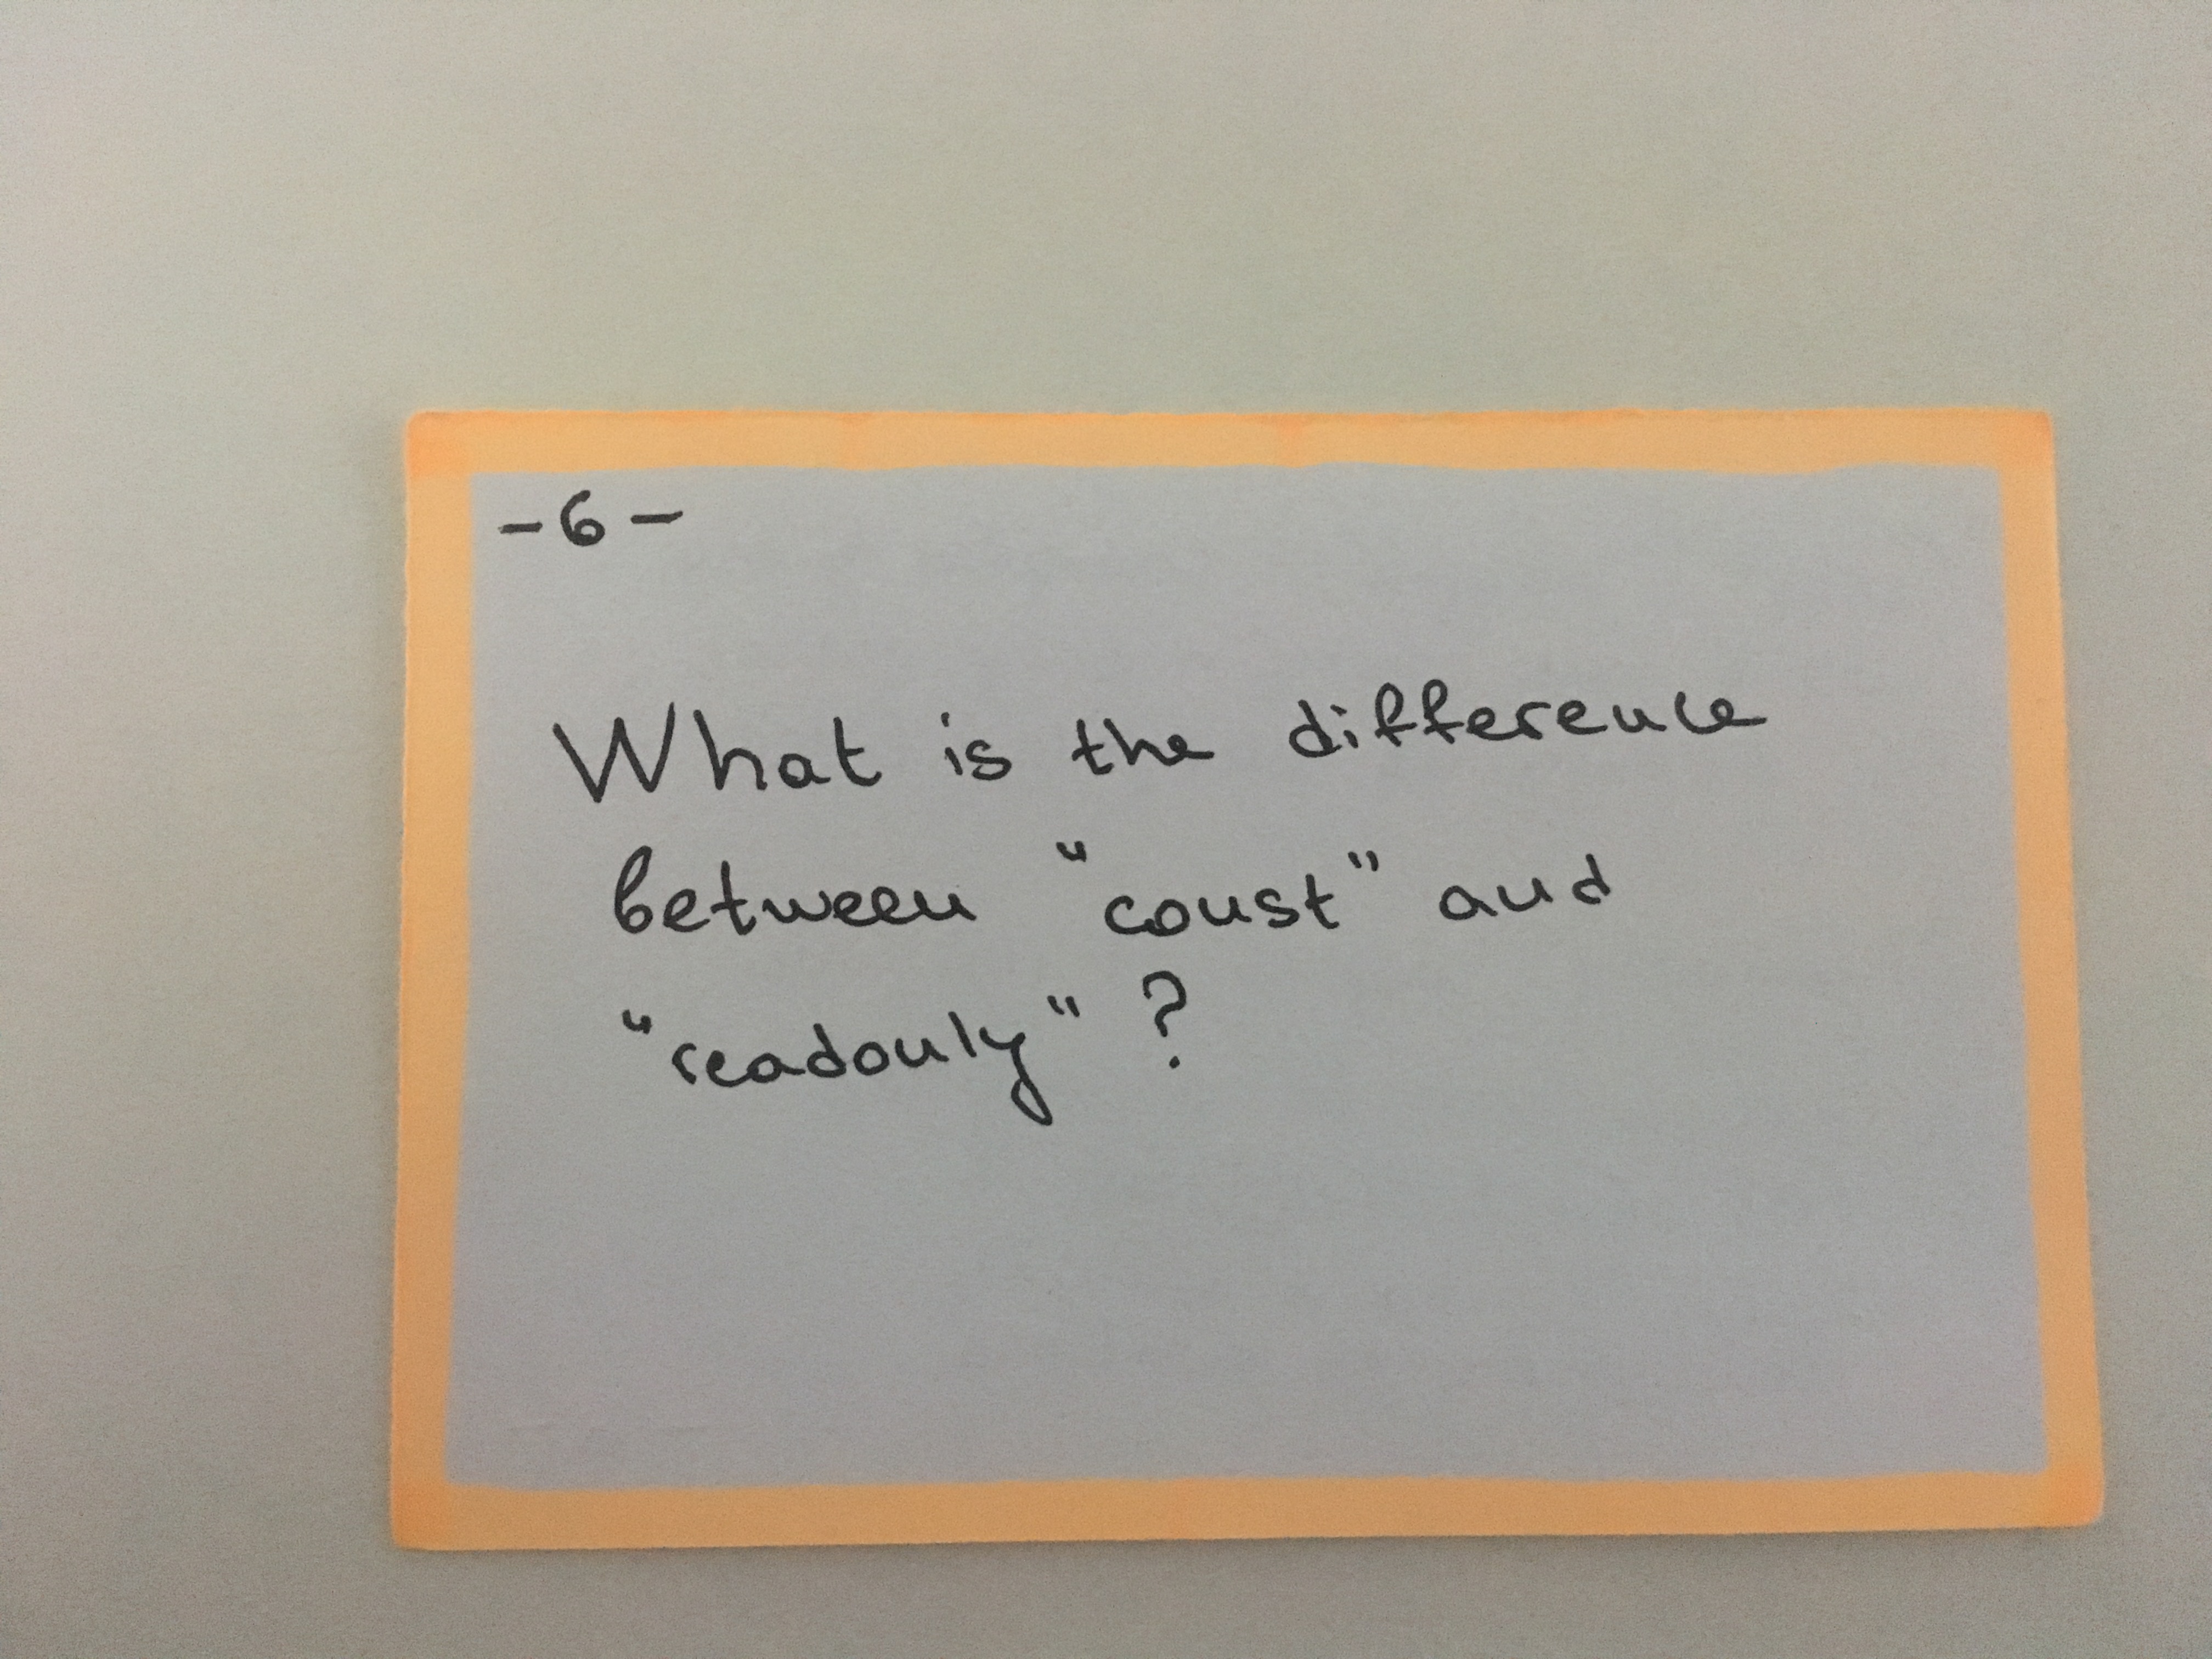 - 6 -
What is the difference
between "const" and
"readonly"?